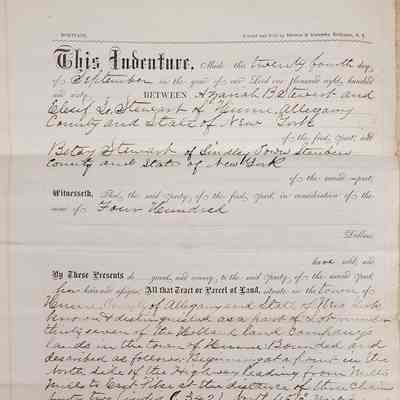 MORTGAGE.
This Indenture, Made the twenty fourth day
of September in the year of our Lord one thousand eight hundred
and sixty BETWEEN Azariah B Stewart and
Stewart of Hume Allegany
County and State of New York
of the first part, and
Betsy Stewart of Lindley Town Steuben
County and State of New York
of the second part,
Witnesseth, That the said party of the first part, in consideration of the
sum of Four Hundred
Dollars
have sold, and
By These Presents do grant and convey, to the said party of the second part
her heirs and assigns, All that Tract or Parcel of Land, situate in the town of
Hume County of Allegany and State of New York
known & distinguished as a part of Lot number
thirty seven of the Holland Land Company's
lands in the town of Hume Bounded and
described as follows Beginning at a point in the
North side of the Highway leading from Mills
Mills to East Pike at the distance of three Chains